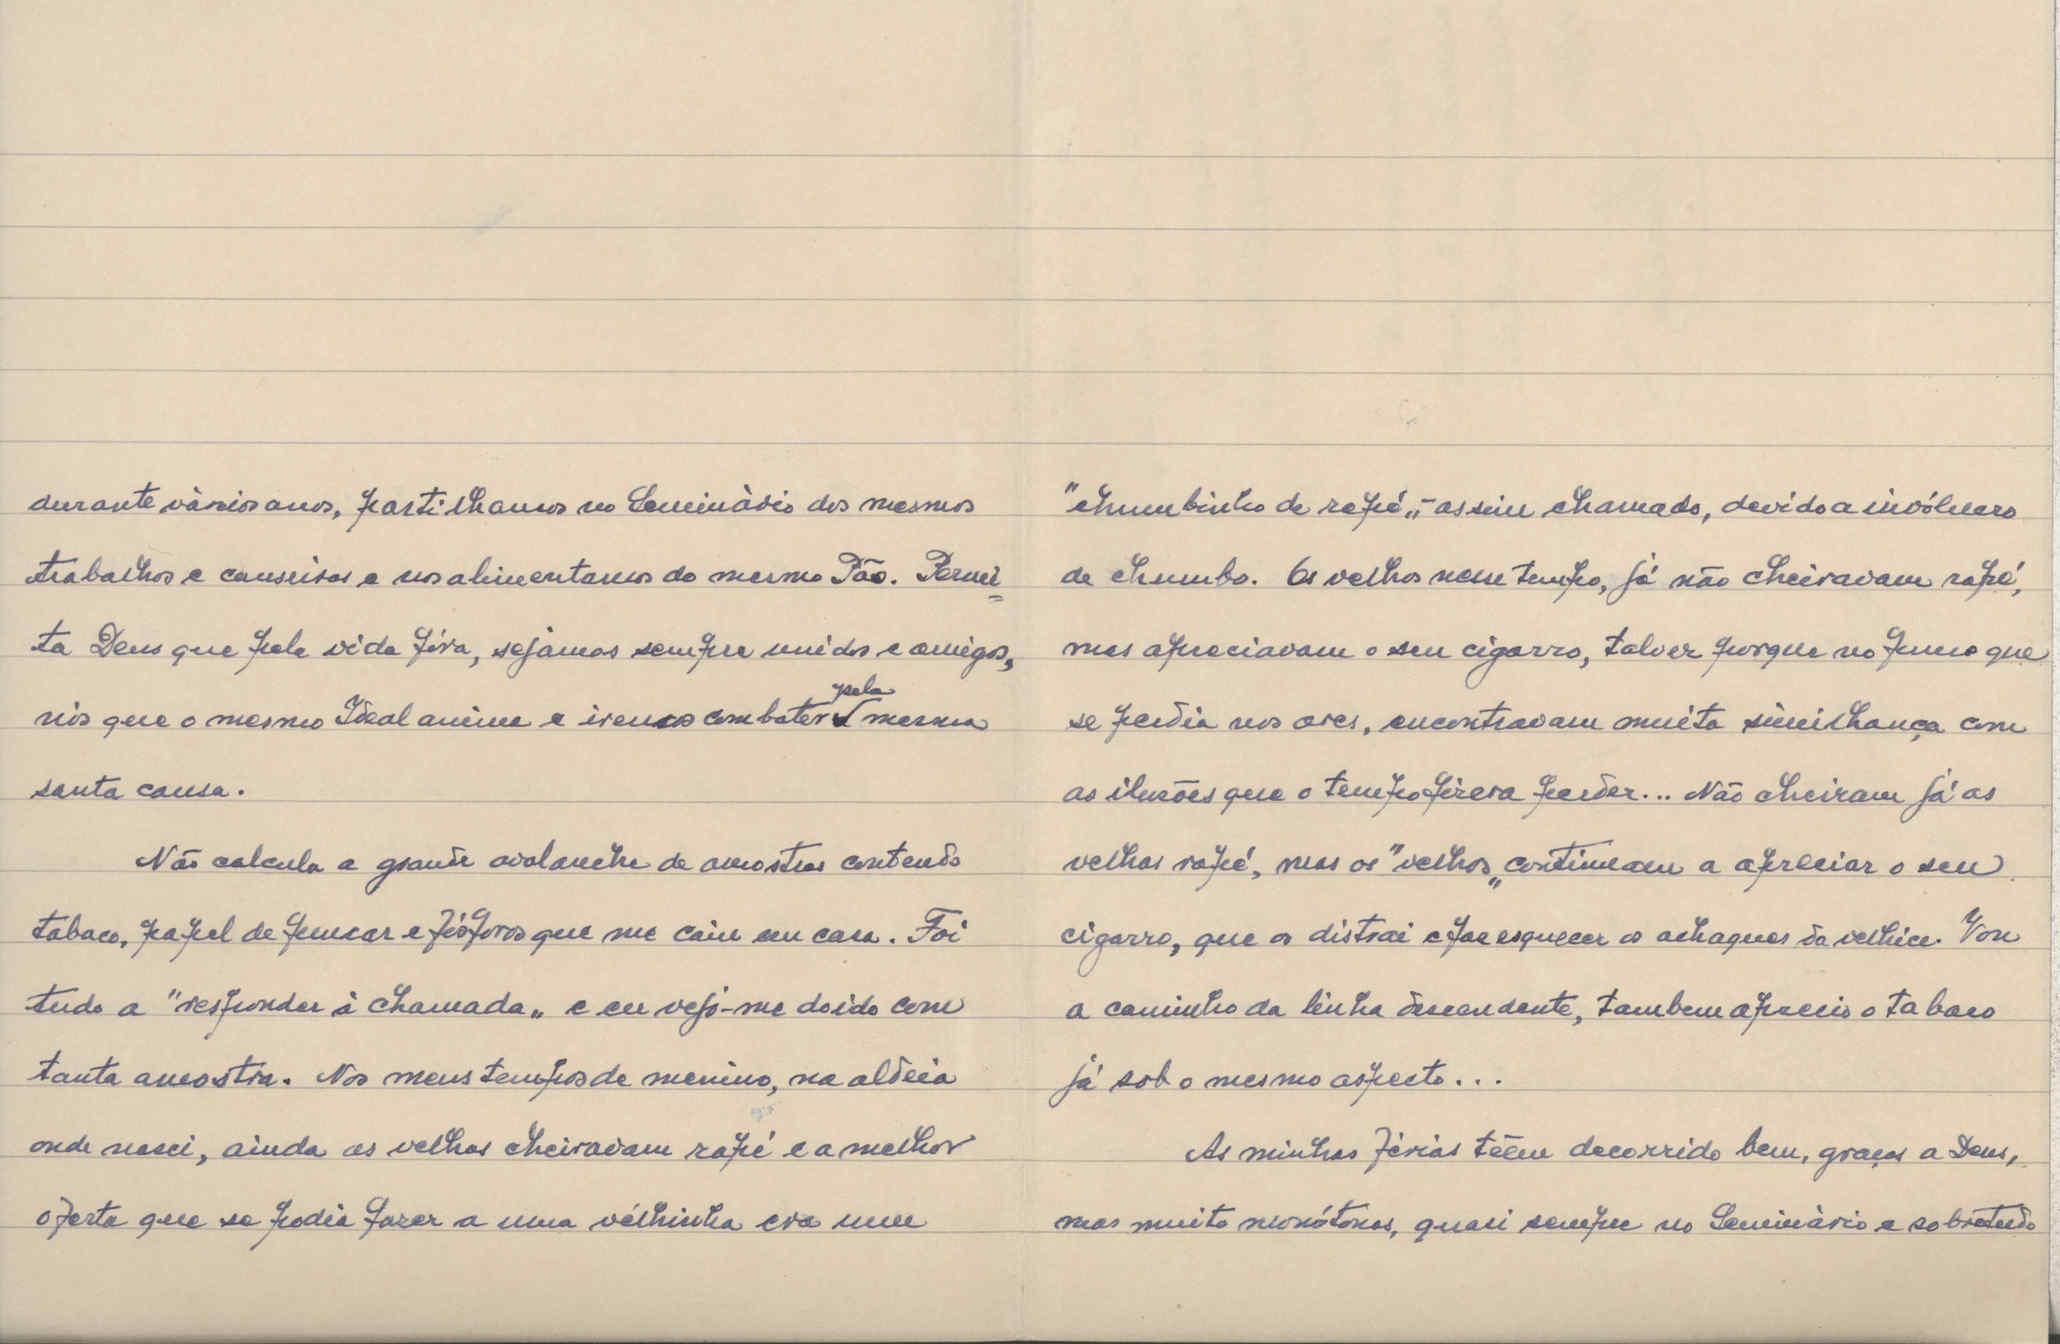 durante vàrios anos, partilhamos no Seminàrio dos mesmos
trabalhos e canseiras e nos alimentamos do mesmo Pão. Permi=
ta Deus que pela vida fóra, sejamos sempre unidos e amigos,
nós que o mesmo Ideal anima e iremos combater pela mesma
santa causa.
Não calcula a grande avalanche de amostras contendo
tabaco, papel de fumar e fósforos que me caiu em casa. Foi
tudo a "responder à chamada„ e eu vejo-me doido com
tanta amostra. Nos meus tempos de menino, na aldeia
onde nasci, ainda as velhas cheiravam rapé e a melhor
oferta que se podia fazer a uma vélhinha era um
"chumbinho de rapé„ - assim chamado, devido a invólucro
de chumbo. Os velhos nesse tempo, já não cheiravam rapé,
mas apreciavam o seu cigarro, talvez porque no fumo que
se perdia nos ares, encontravam muita similhança com
as ilusões que o tempo fizera perder... Não cheiram já as
velhas rapé, mas os "velhos„ continuam a apreciar o seu
cigarro, que os distrai e faz esquecer os achaques da velhice. Vou
a caminho da linha descendente, tambem aprecio o tabaco
já sob o mesmo aspecto...
As minhas férias têem decorrido bem, graças a Deus,
mas muito monótonas, quasi sempre no Seminàrio e sobretudo